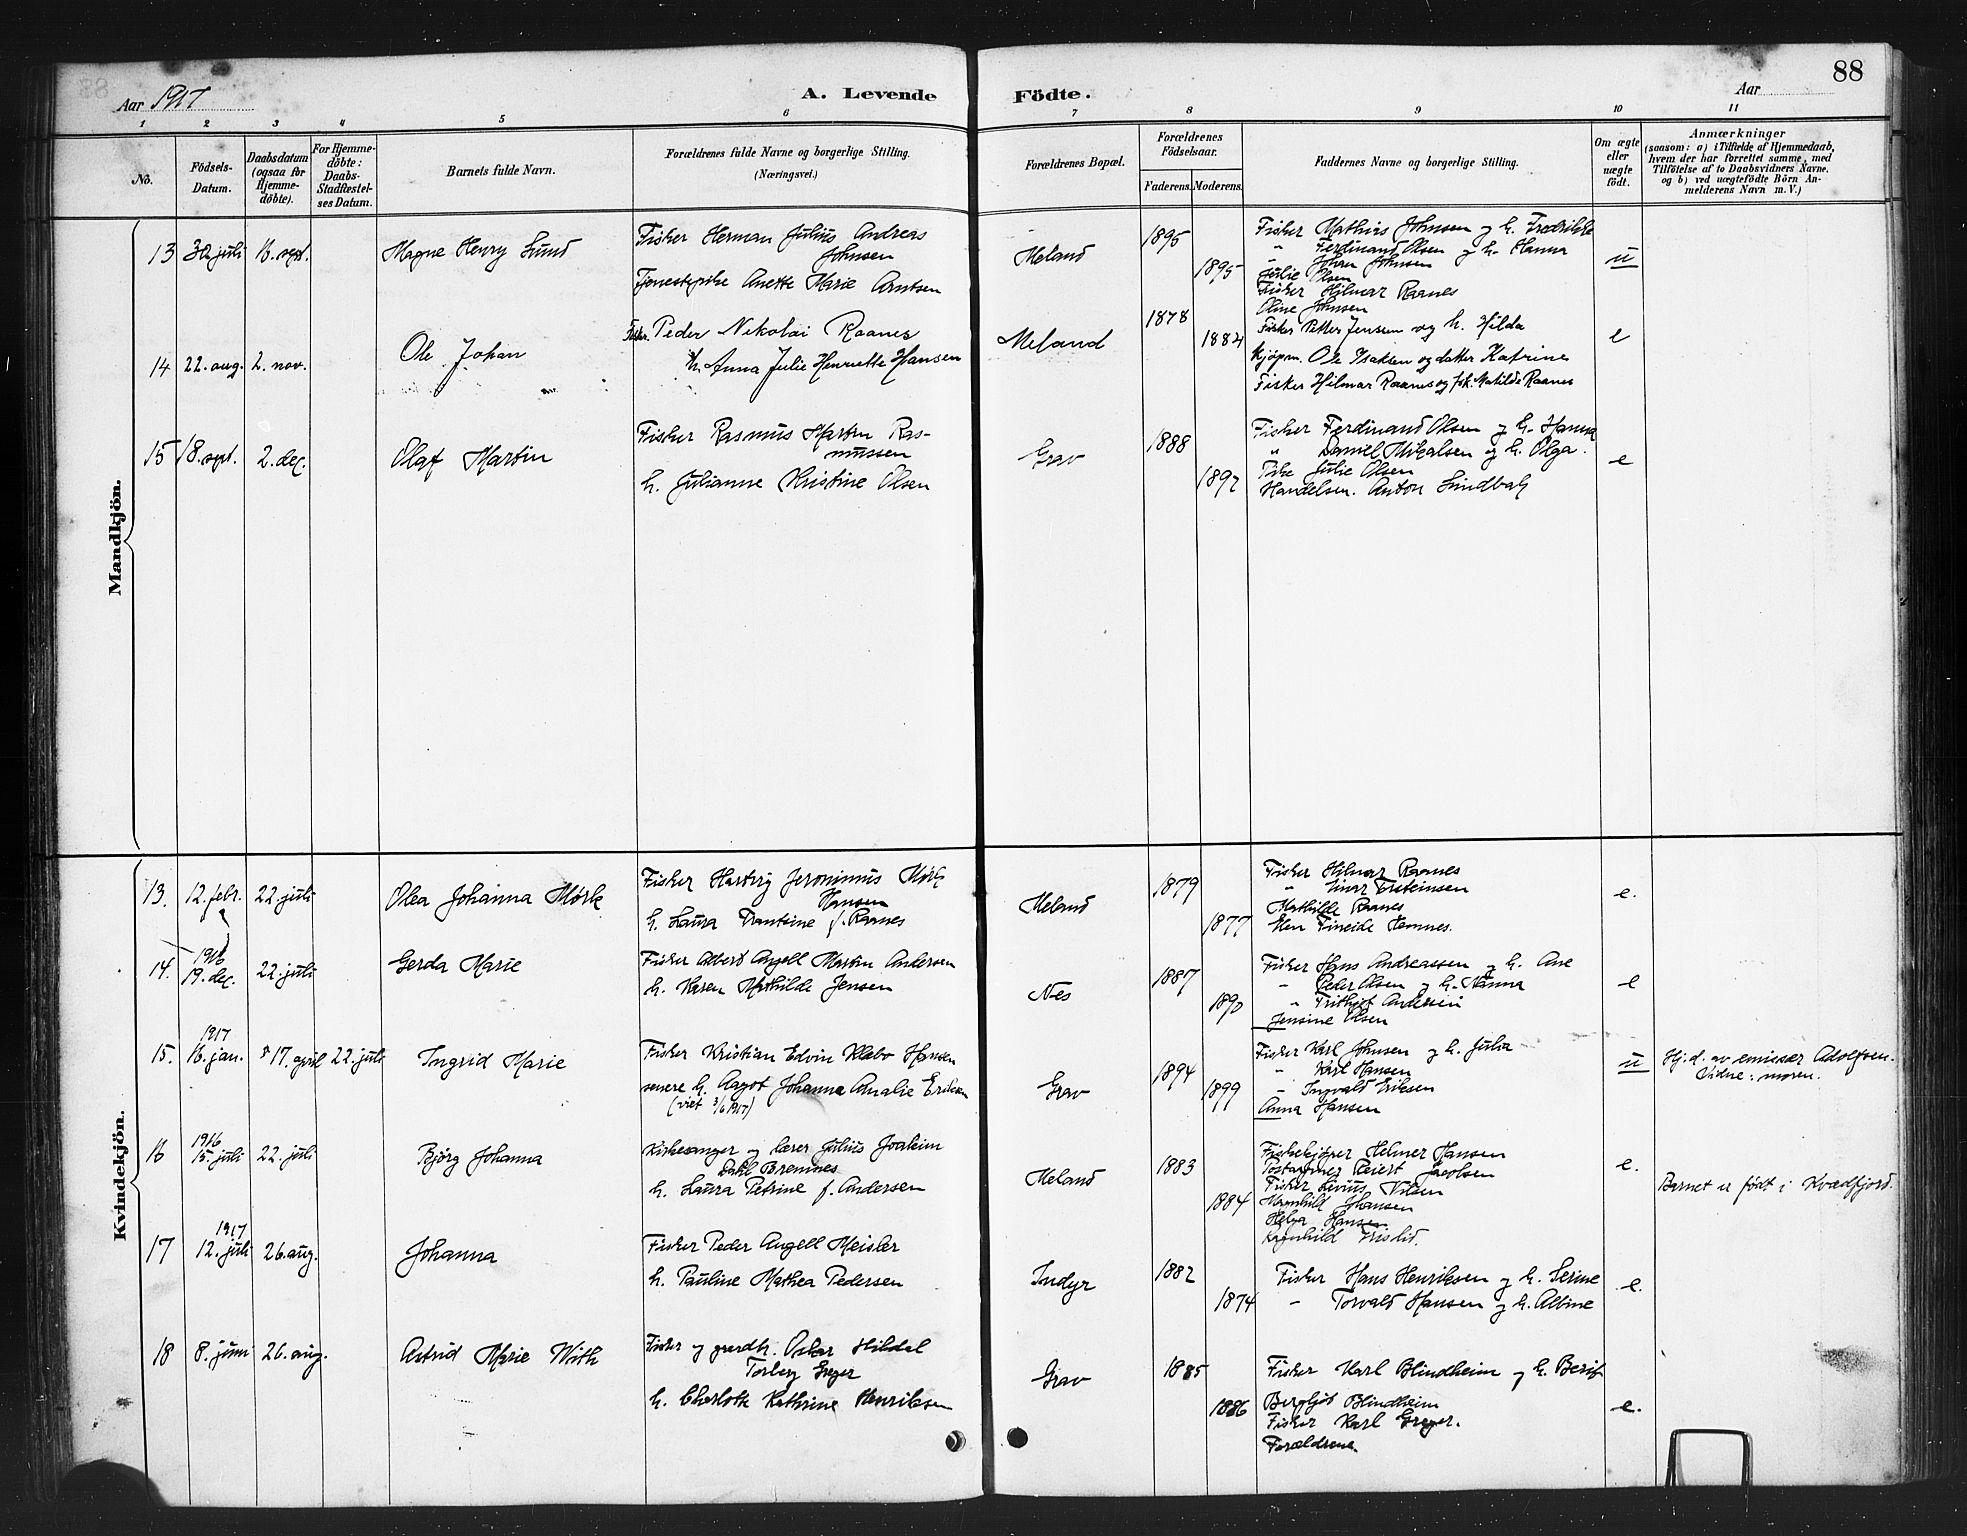 88
Aar 1917
A. Levende Födte.
Aar
1 2 3 4 5 6 7 8 9 10 11
No.
Födsels-Datum.
Daabsdatum (ogsaa for Hjemme-döbte).
For Hjemme-döbte: Daabs-Stadfæstel-ses Datum.
Barnets fulde Navn.
Forældrenes fulde Navne og borgerlige Stilling. (Næringsvei.)
Forældrenes Bopæl.
Forældrenes Födselsaar.
Faderens. Moderens.
Faddernes Navne og borgerlige Stilling.
Om ægte eller uægte födt.
Anmærkninger
(saasom: a) i Tilfælde af Hjemmedaab, hvem der har forrettet samme, med Tilföielse af to Daabsvidners Navne. og b) ved uægtefödte Börn An-melderens Navn m. V.)
Mandkjön.
13 30 juli 16. sept. Magne Henry Lund
Fisker Herman Julius Andreas
Johnsen
Tjenestepike Anette Marie Arntsen
Meland 1895 1895
Fisker Mathias Johnsen og h. Fredrikke
" Ferdinand Olsen og h. Hanna
" Johan Johnsen
Julie Olsen
Fisker Hilmar Raanes
Oline Johnsen
u
14 22. aug. 2. nov. Ole Johan
Fisker Peder Nikolai Raanes
h. Anna Julie Henriette Hansen
Meland 1878 1882
Fisker Petter Jensen og h. Hilda
Kjøpm. Ole Isaksen og datter Katrine
Fisker Hilmar Raanes og frk. Matilde Raanes
e
15 18. sept. 2. dec. Olaf Martin
Fisker Rasmus Martin Ras-
mussen
h. Julianne Kristine Olsen
Grav 1888 1892
Fisker Ferdinand Olsen og h. Hanna
" Daniel Mikalsen og h. Olga.
Pike Julie Olsen
Handelsm. Anton Lindbak
e
Kvindekjön.
13. 12. febr. 22. juli Olea Johanna Mørk
Fisker Hartvig Jeronimus Mørk
Hansen
h. Laura Frantsine f. Raanes
Meland 1879 1877
Fisker Hilmar Raanes
" Einar Torsteinsen
Mathilde Raanes
Ellen Fineide Hemnes.
e.
14. 1916 19. dec. 22. juli Gerda Marie
Fisker Albert Angell Martin Andersen
h. Karen Mathilde Jensen
Nes 1887 1890
Fisker Hans Andreassen og h. Ane
" Peder Olsen og h. Hanna
" Frithjof Andersen
Jensine Olsen
e
15. 1917 16. jan. 17. april 22. juli Ingrid Marie
Fisker Kristian Edvin Klæbo Hansen
senere h. Aagot Johanna Amalie Eriksen
(viet 3/6 1917)
Grav 1894 1899
Fisker Karl Johnsen og h. Julia
" Karl Hansen
" Ingvald Eriksen
Anna Hansen
u
Hj.d. av emissær Adolfsen.
Vidne: moren.
16 1916 15. juli 22. juli Bjørg Johanna
Kirkesanger og lærer Julius Joakim
Dahl Bremnes
h. Laura Petrine f. Andersen
Meland 1883 1884
Fiskekjøper Helmer Hansen
Jacobsen
Fisker Livius Nilsen
Magnhild Johansen
Helga Hansen
Ragnhild
e.
Barnet er født i Kvædfjord.
17 1917 12. juli 26. aug. Johanna
Fisker Peder Angell Meisler
h. Pauline Mathea Pedersen
Indyr 1882 1874
Fisker Hans Henriksen og h. Serine
" Torvald Hansen og h. Albine
e.
18 8. juni 26. aug. Astrid Marie With
Fisker og gaardbr. Oskar Hildal
Torberg Greger
h. Charlotte Kathrine Henriksen
Grav 1885 1886
Fisker Karl Blindheim og h. Berit
Bergljot Blindheim
Fisker Karl Greger.
Forældrene
e.